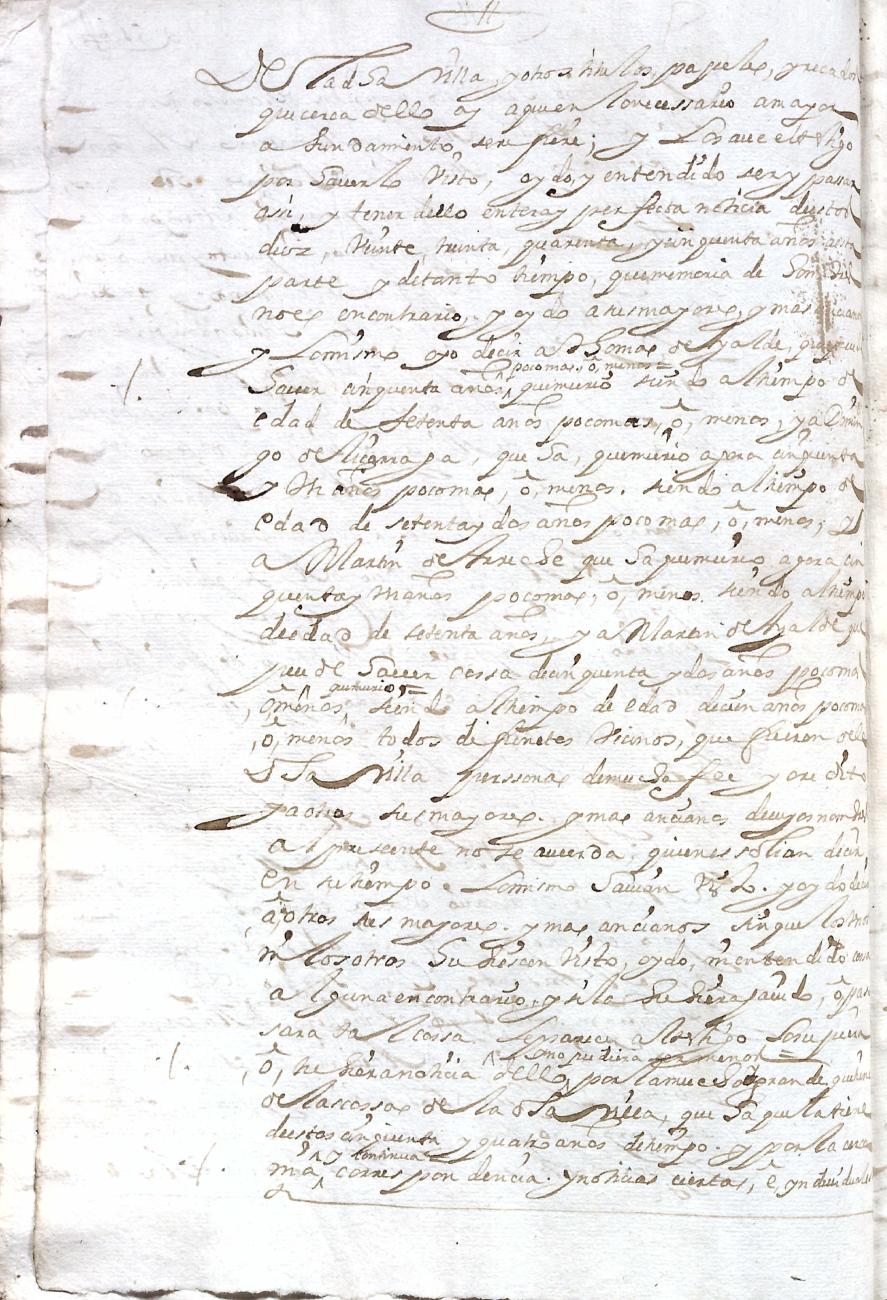 De la d ha Villa, y otros titulos, papeles, y recados
que cerca dello ay aquien lo necessario a mayor
a bundamiento se refiere; y lo saue el testigo
por hauerlo Visto, oydo, y entendido ser y passar
assi, y tener dello entera y perfecta noticia de estos
diez, Veinte, treinta, quarenta, y cinquenta años desta
parte y de tanto tiempo, que memoria de hombres
no es en contrario, y oydo a sus mayores, y mas ancianos
y lo mismo oyo decir a D Thomas de Ayalde, que puede
hauer cinquenta años, poco mas, o, menos = que murio siendo al tiempo de
edad de setenta años poco mas, o, menos, y a Domin
go de, que ha, que murio agora cinquenta
y tres años poco mas, o, menos. siendo al tiempo de
edad de setenta y dos años poco mas, o, menos, y
a Martin de Arreche que ha que murio agora cin
quenta y tres años poco mas, o, menos. siendo al tiempo
de edad de setenta años, y a Martin de Ayalde que
puede hauer cossa de cinquenta y dos años poco mas
o menos, que murio = siendo al tiempo de edad de cien años poco mas
, o, menos todos difuntos Vecinos, que fueron de la
d ha Villa perssonas de mucha fee y credito
y a otros sus mayores. y mas ancianos de cuyos nombres
al pressente no se acuerda. quienes solian decir
en su tiempo. lo mismo hauian Visto. y oydo decir
a otros sus mayores. y mas ancianos sin que los unos
ni los otros hubiessen Visto, oydo, ni entendido cossa
alguna en contrario, y si la hubiera hauido, o, pas
sara tal cossa. le pareze al testigo lo supiera
, o, tubiera noticia dello, y no pudiera ser menos = por la mucha y grande que tiene
de las cossas de la d ha Villa, que ha que la tiene
de estos cinquenta y quatro años de tiempo. y por la cerca
nia y continua correspondencia. y noticias ciertas, e, yndiuiduales